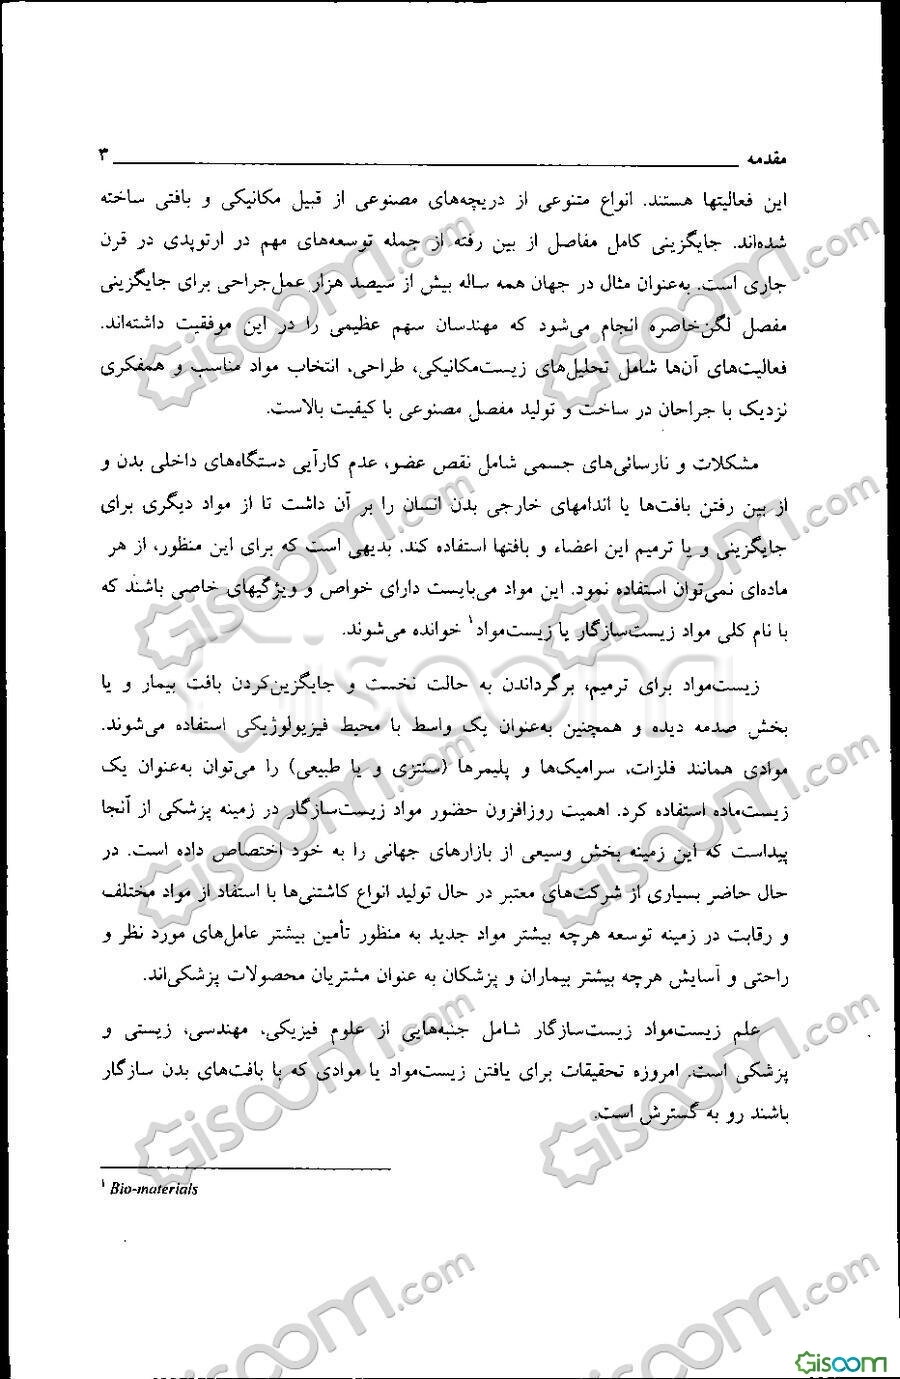 مقدمه ۳
این فعالیتها هستند. انواع متنوعی از دریچه‌های مصنوعی از قبیل مکانیکی و بافتی ساخته
شده‌اند. جایگزینی کامل مفاصل از بین رفته از جمله توسعه‌های مهم در ارتوپدی در قرن
جاری است. به‌عنوان مثال در جهان همه ساله بیش از سیصد هزار عمل‌جراحی برای جایگزینی
مفصل لگن‌خاصره انجام می‌شود که مهندسان سهم عظیمی را در این موفقیت داشته‌اند.
فعالیت‌های آن‌ها شامل تحلیل‌های زیست‌مکانیکی، طراحی، انتخاب مواد مناسب و همفکری
نزدیک با جراحان در ساخت و تولید مفصل مصنوعی با کیفیت بالاست.
مشکلات و نارسائی‌های جسمی شامل نقص عضو، عدم کارآیی دستگاه‌های داخلی بدن و
از بین رفتن بافت‌ها یا اندامهای خارجی بدن انسان را بر آن داشت تا از مواد دیگری برای
جایگزینی و یا ترمیم این اعضاء و بافتها استفاده کند. بدیهی است که برای این منظور، از هر
ماده‌ای نمی‌توان استفاده نمود. این مواد می‌بایست دارای خواص و ویژگیهای خاصی باشند که
با نام کلی مواد زیست‌سازگار یا زیست‌مواد۱ خوانده می‌شوند.
زیست‌مواد برای ترمیم، برگرداندن به حالت نخست و جایگزین‌کردن بافت بیمار و یا
بخش صدمه دیده و همچنین به‌عنوان یک واسط با محیط فیزیولوژیکی استفاده می‌شوند.
موادی همانند فلزات، سرامیک‌ها و پلیمرها (سنتزی و یا طبیعی) را می‌توان به‌عنوان یک
زیست‌ماده استفاده کرد. اهمیت روزافزون حضور مواد زیست‌سازگار در زمینه پزشکی از آنجا
پیداست که این زمینه بخش وسیعی از بازارهای جهانی را به خود اختصاص داده است. در
حال حاضر بسیاری از شرکت‌های معتبر در حال تولید انواع کاشتنی‌ها با استفاد از مواد مختلف
و رقابت در زمینه توسعه هرچه بیشتر مواد جدید به منظور تأمین بیشتر عامل‌های مورد نظر و
راحتی و آسایش هرچه بیشتر بیماران و پزشکان به عنوان مشتریان محصولات پزشکی‌اند.
علم زیست‌مواد زیست‌سازگار شامل جنبه‌هایی از علوم فیزیکی، مهندسی، زیستی و
پزشکی است. امروزه تحقیقات برای یافتن زیست‌مواد یا موادی که با بافت‌های بدن سازگار
باشند رو به گسترش است.
۱ Bio-materials
Gisoom.com
Gisoom.com
Gisoom.com
Gisoom.com
Gisoom
Gisoom.com
Gisoom.com
Gisoom.com
Gisoom.com
Gisoom.com
Gisoom.com
Gisoom